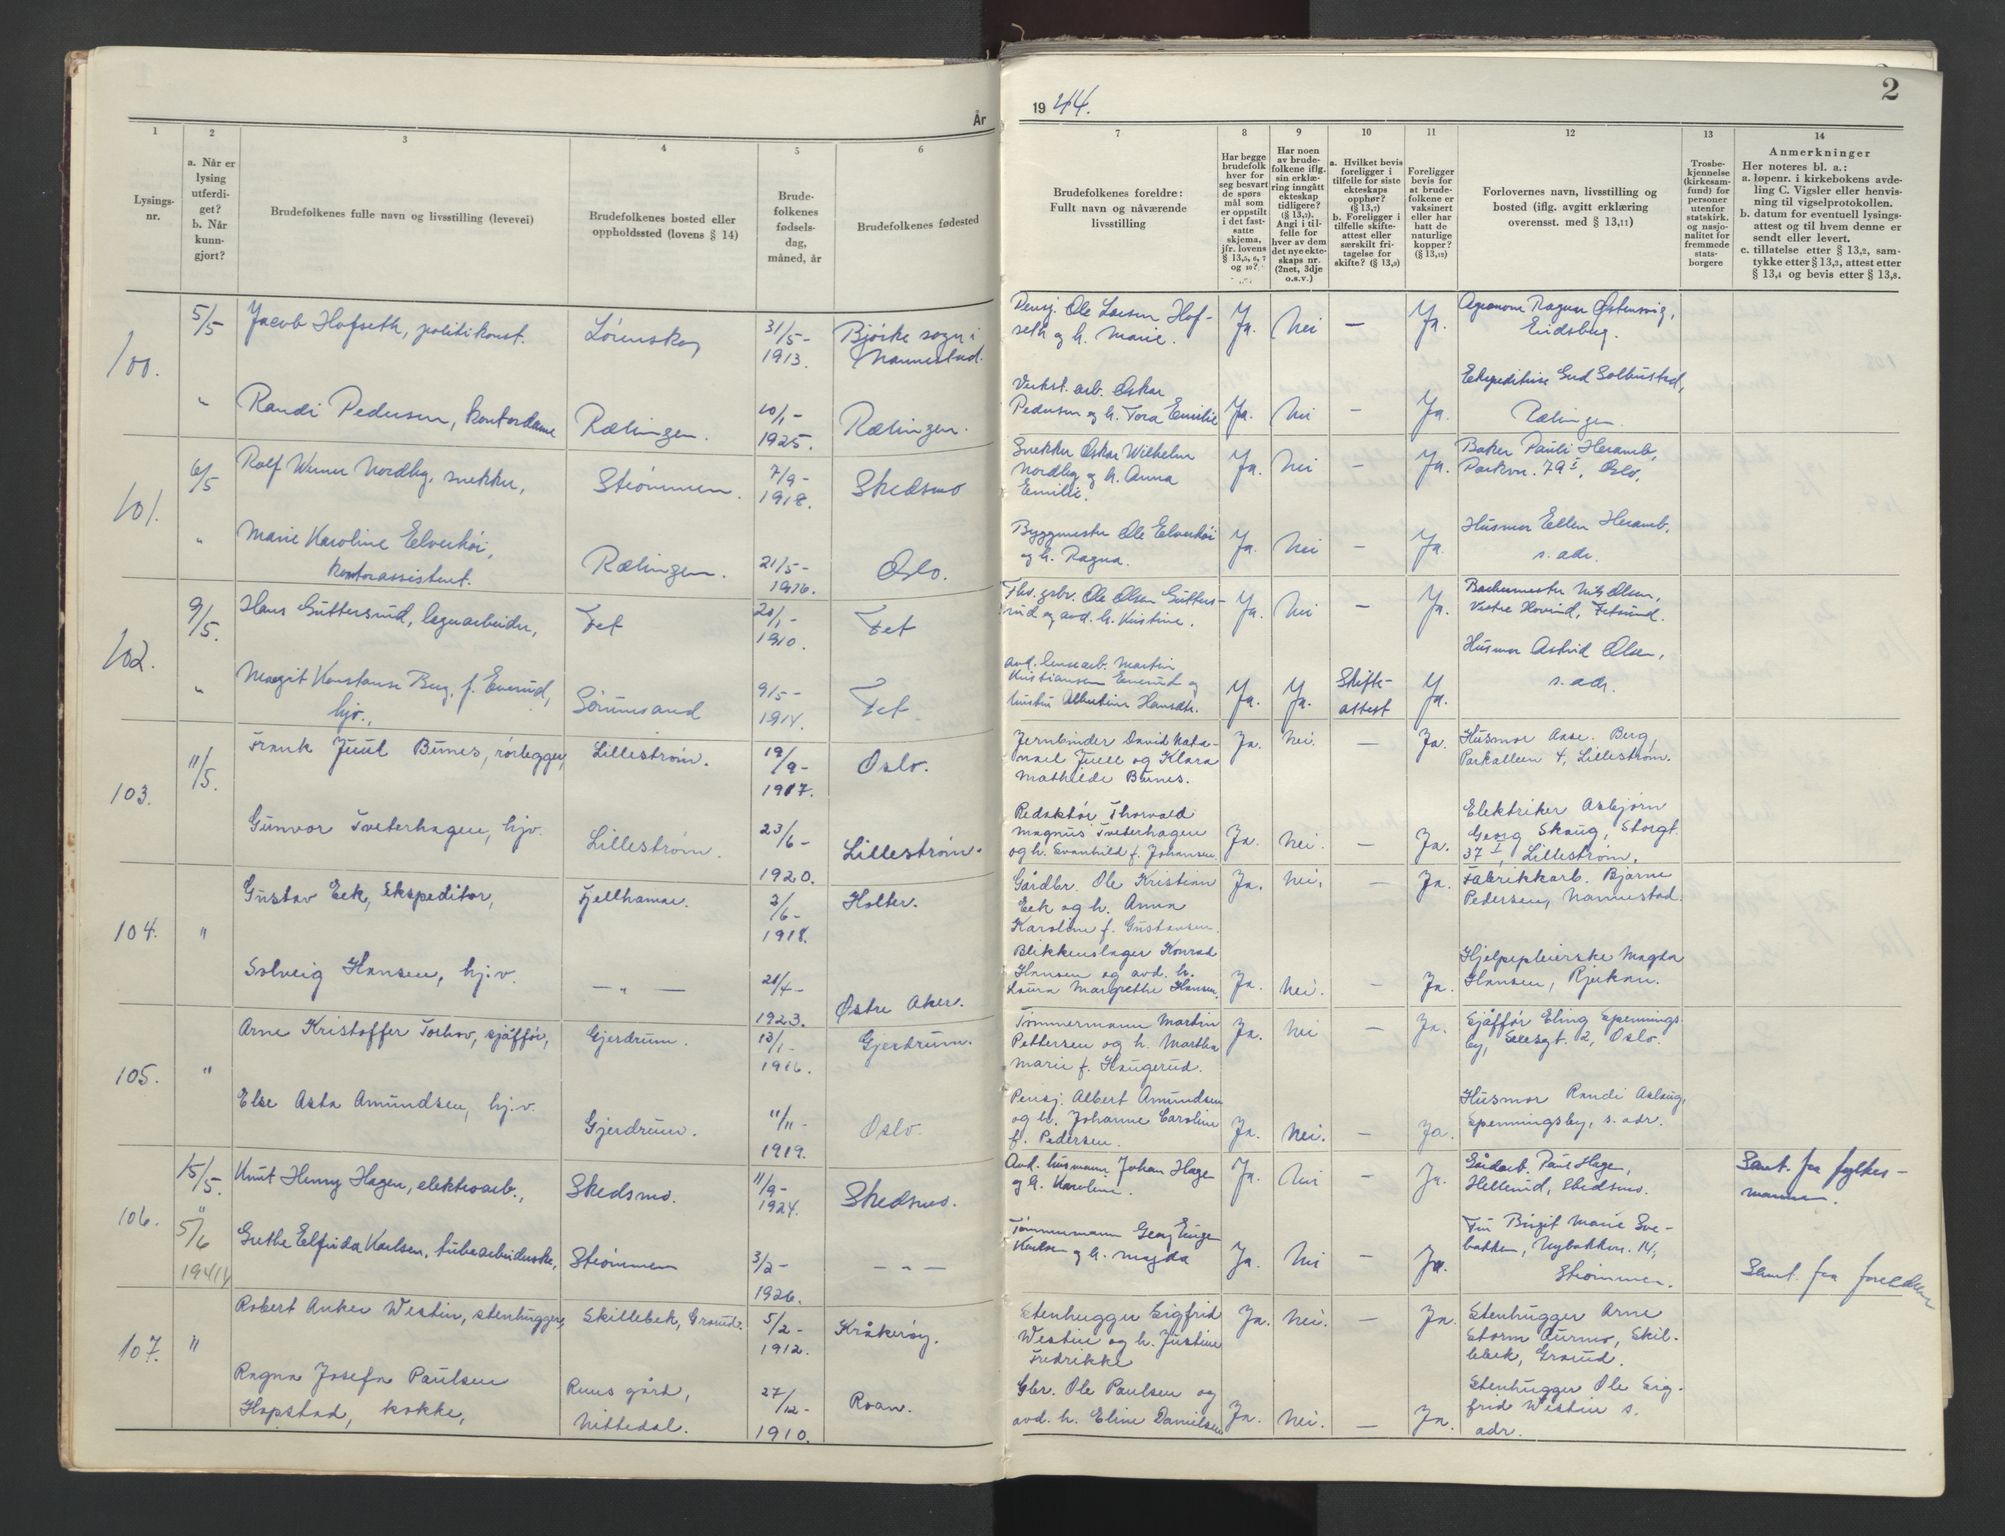 År 19 44.
2
1
2
3
4
5
6
7
8
9
10
11
12
13
14
Lysings-
nr.
a. Når er
lysing
utferdi-
get?
b. Når
kunn-
gjort?
Brudefolkenes fulle navn og livsstilling (levevei)
Brudefolkenes bosted eller
oppholdssted (lovens § 14)
Brude-
folkenes
fødsels-
dag,
måned, år
Brudefolkenes fødested
Brudefolkenes foreldre:
Fullt navn og nåværende
livsstilling
Har begge
brudefolk
hver for
seg besvart
de spørs
mål som
er oppstilt
i det fast-
satte
skjema,
jfr. lovens
§ 13,5, 6, 7
og 10?
Har noen
av brude-
folkene iflg.
sin erklæ-
ring inngått
ekteskap
tidligere?
(§ 13,7)
Angi i til-
felle for
hver av dem
det nye ekte-
skaps nr.
(2net, 3dje
o.s.v.)
a. Hvilket bevis
foreligger i
tilfelle for siste
ekteskaps
opphør?
(§ 13,7)
b. Foreligger i
tilfelle skifte-
attest eller
særskilt fri-
tagelse for
skifte? (§ 13,9)
Foreligger
bevis for
at brude-
folkene er
vaksinert
eller har
hatt de
naturlige
kopper?
(§ 13,12)
Forlovernes navn, livsstilling og
bosted (iflg. avgitt erklæring
overensst. med § 13,11)
Trosbe-
kjennelse
(kirkesam-
fund) for
personer
utenfor
statskirk.
og nasjo-
nalitet for
fremmede
stats-
borgere
Anmerkninger
Her noteres bl. a.:
a. løpenr. i kirkebokens avde-
ling C. Vigsler eller henvis-
ning til vigselprotokollen.
b. datum for eventuell lysings-
attest og til hvem denne er
sendt eller levert.
c. tillatelse etter § 13,2, sam-
tykke etter § 13,3, attest etter
§ 13,4 og bevis etter § 13,8.
100.
5/5
Jacob Hofseth, politikonst.
Lørenskog
31/5-
1913.
Bjørke sogn i
Nannestad.
Pensj. Ole Larsen Hof-
seth og h. Marie.
Ja.
Nei
—
Ja.
Agronom Ragnar Østensvig,
Eidsberg.
"
Randi Pedersen, kontordame
Rælingen.
10/1-
1925.
Rælingen.
Verkst. arb. Oskar
Pedersen og h. Tora Emilie
Ja.
Nei
—
Ja.
Ekspeditrise Gud Solbustad,
Rælingen.
101.
6/5
Rolf Werner Nordby, snekker,
Strømmen.
7/9-
1918.
Skedsmo
Snekker Oskar Wilhelm
Nordby og h. Anna
Emilie.
Ja.
Nei
—
Ja.
Baker Pauli Heramb,
Parkvn. 79 I, Oslo.
"
Marie Karoline Elverhøi,
kontorassistent.
Rælingen.
21/5-
1916.
Oslo.
Byggmester Ole Elverhøi
og h. Ragna.
Ja.
Nei
—
Ja.
Husmor Ellen Heramb,
s. adr.
102.
9/5.
Hans Guttersrud, lagerarbeider,
Fet
20/1-
1910.
Fet
Fhv. grbr. Ole Olsen Gutters-
rud og avd. h. Kristine.
Ja.
Nei
—
Ja.
Nils Olsen,
Vestre Hovind, Fetsund.
"
Margit Konstanse Berg, f. Enerud,
hjv.,
Sørumsand
9/5-
1914.
Fet
avd. lensearb. Martin
Kristiansen Enerud og
hustru Albertine Hansdtr.
Ja.
Ja.
Skifte-
attest
Ja.
Husmor Astrid Olsen,
s. adr.
103.
11/5.
Frank Juul Bunes, rørlegger,
Lillestrøm.
19/9-
1917.
Oslo.
Jernbinder David Nata-
nael Juell og Klara
Mathilde Bunes.
Ja.
Nei.
—
Ja.
Husmor Aase Berg,
Parkalleen 4, Lillestrøm.
Gunvor Tveterhagen, hjv.
Lillestrøm.
23/6-
1920.
Lillestrøm.
Redaktør Thorvald
Magnus Tveterhagen
og h. Svanhild f. Johansen.
Ja.
Nei.
—
Ja.
Elektriker Asbjørn
Georg Skaug, Storgt.
37 I, Lillestrøm.
104.
"
Gustav Eek, ekspeditor,
Fjellhamar.
3/6-
1918.
Holter.
Gårdbr. Ole Kristian
Eek og h. Anna
Karoline f. Gustavsen.
Ja.
Nei.
—
Ja.
Fabrikkarb. Bjarne
Pedersen, Nannestad.
Solveig Hansen, hj.v.
— " —
21/4-
1923.
Østre Aker.
Blikkenslager Konrad
Hansen og avd. h.
Laura Margrethe Hansen.
Ja.
Nei.
—
Ja.
Hjelpepleierske Magda
Hansen, Rjukan.
105.
"
Arne Kristoffer Torhov, sjåffør,
Gjerdrum.
13/1-
1916.
Gjerdrum.
Tømmermann Martin
Pettersen og h. Martha
Marie f. Haugerud.
Ja.
Nei
—
Ja.
Sjåffør Eling Spennings-
by, Eilesgt. 2, Oslo.
Else Asta Amundsen, hj.v.
Gjerdrum.
11/11-
1919.
Oslo.
Pensj. Albert Amundsen
og h. Johanne Caroline
f. Pedersen.
Ja.
Nei.
—
Ja.
Husmor Randi Aslaug
Spenningsby, s. adr.
106.
15/5.
Knut Henry Hagen, elektroarb.,
Skedsmo.
11/9-
1924.
Skedsmo.
Avd. husmann Johan Hage
og h. Karoline.
Ja.
Nei
—
Ja.
Gårdarb. Paul Hagen,
Hellerud, Skedsmo.
Samt. fra fylkes-
mannen.
"
5/6
1944
Grethe Elfrida Karlsen, tubearbeiderske,
Strømmen
3/2-
1926.
— " —
Tømmermann Georg Inge
Karlsen og h. Magda
Ja.
Nei
—
Ja.
Fru Birgit Marie Sve-
bakken, Nybakken 14,
Strømmen.
Samt. fra foreldrene
107.
"
Robert Anker Westin, stenhugger,
Skillebek, Grorud.
5/2-
1912.
Kråkerøy.
Stenhugger Sigfrid
Westin og h. Justine
Fredrikke
Ja.
Nei.
—
Ja.
Stenhugger Arne
Storm Aurmo, Skil-
lebek, Grorud.
Ragna Josefa Paulsen
Hopstad, kokke,
Ruus gård,
Nittedal.
27/12-
1910.
Roan.
Gbr. Ole Paulsen og
avd. h. Eline Danielsen
Ja.
Nei.
—
Ja.
Stenhugger Ole Sig-
frid Westin s.
adr.